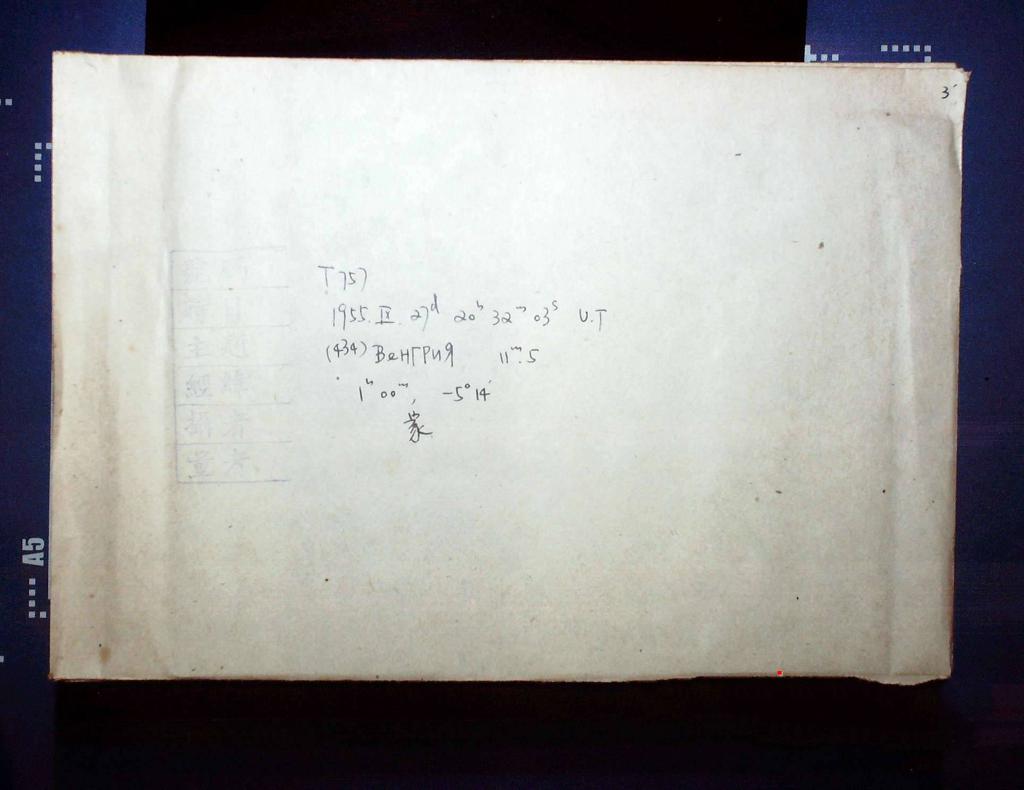 3
T757
1955. IX. 27ᵈ 20ʰ 32ᵐ 03ˢ U.T
(434) Венгрия 11ᵐ.5
1ʰ 00ᵐ, -5° 14'
A5